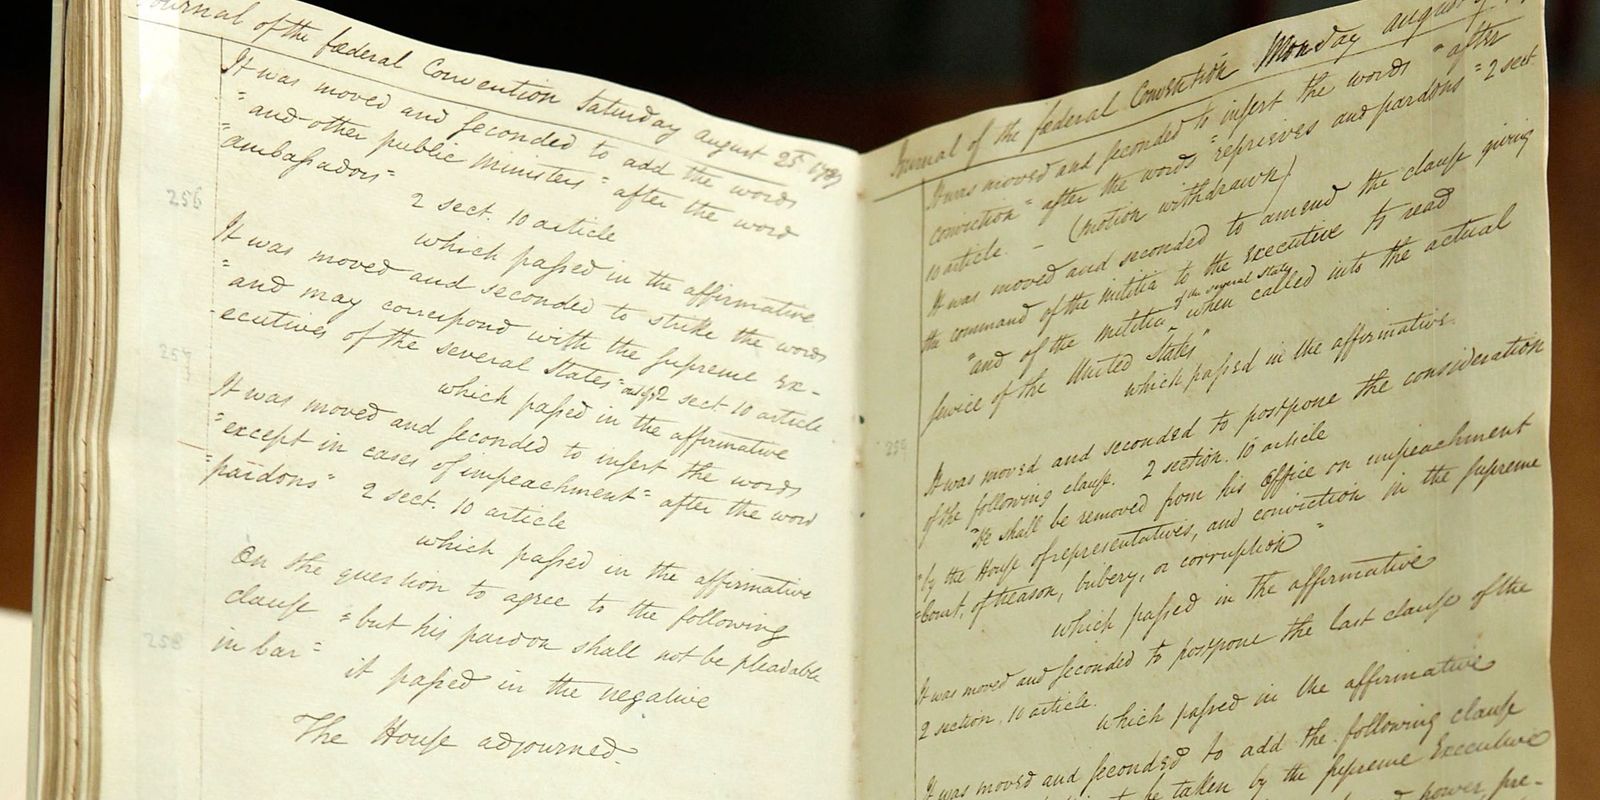 Journal of the fœderal Convention Saturday august 25. 1787
It was moved and seconded to add the words
"and other public Ministers" after the word
"ambassadors"
2 sect. 10 article
which passed in the affirmative
256
It was moved and seconded to strike the words
"and may correspond with the supreme Ex-
-ecutives of the several States" out of 2 sect. 10 article
which passed in the affirmative
257
It was moved and seconded to insert the words
"except in cases of impeachment" after the word
"pardons" 2 sect. 10 article
which passed in the affirmative
On the question to agree to the following
clause "but his pardon shall not be pleadable
in bar"
258
it passed in the negative
The House adjourned.
Journal of the fœderal Convention Monday august
It was moved and seconded to insert the words "after
conviction" after the words "reprieves and pardons" 2 sect.
10 article. - (motion withdrawn)
It was moved and seconded to amend the clause giving
the command of the militia to the Executive to read
"and of the militia of the several States when called into the actual
service of the United States"
which passed in the affirmative.
259
It was moved and seconded to postpone the consideration
of the following clause. 2 section. 10 article
"He shall be removed from his Office on impeachment
"by the House of representatives, and conviction in the supreme
"Court, of treason, bribery, or corruption"
which passed in the affirmative
It was moved and seconded to postpone the last clause of the
2 section. 10 article.
which passed in the affirmative
It was moved and seconded to add the following clause
to be taken by the supreme Executive
power, pre-